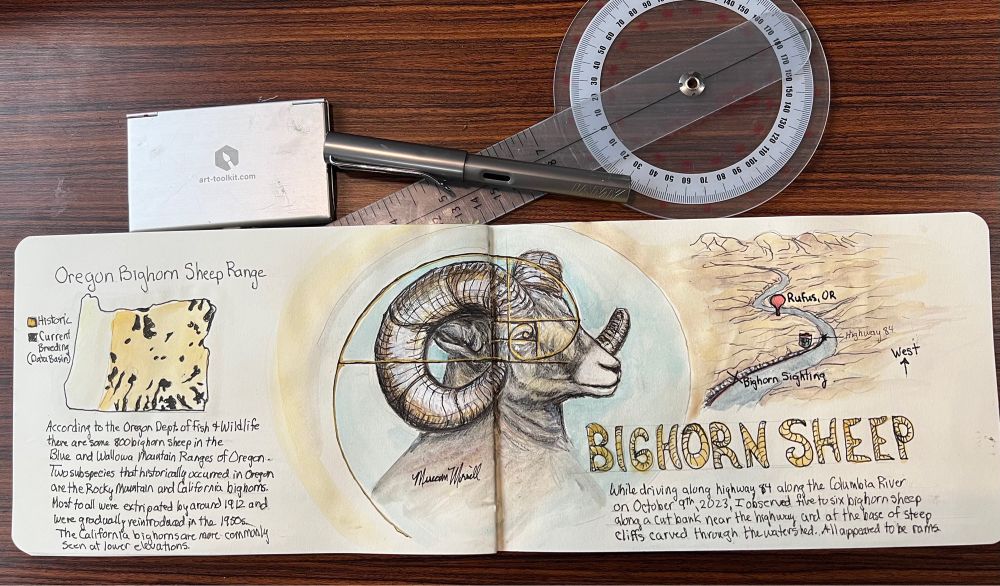 art-toolkit.com
Oregon Bighorn Sheep Range
Historic
Current
Breeding
(Data Basin)
According to the Oregon Dept. of Fish & Wildlife
there are some 800 bighorn sheep in the
Blue and Wallowa Mountain Ranges of Oregon.
Two subspecies that historically occurred in Oregon
are the Rocky Mountain and California bighorns.
Most to all were extirpated by around 1912 and
were gradually reintroduced in the 1950s.
The California bighorns are more commonly
seen at lower elevations.
Rufus, OR
Highway 84
West
Bighorn Sighting
BIGHORN SHEEP
While driving along highway 84 along the Columbia River
on October 9th, 2023, I observed five to six bighorn sheep
along a cut bank near the highway and at the base of steep
cliffs carved through the watershed. All appeared to be rams.